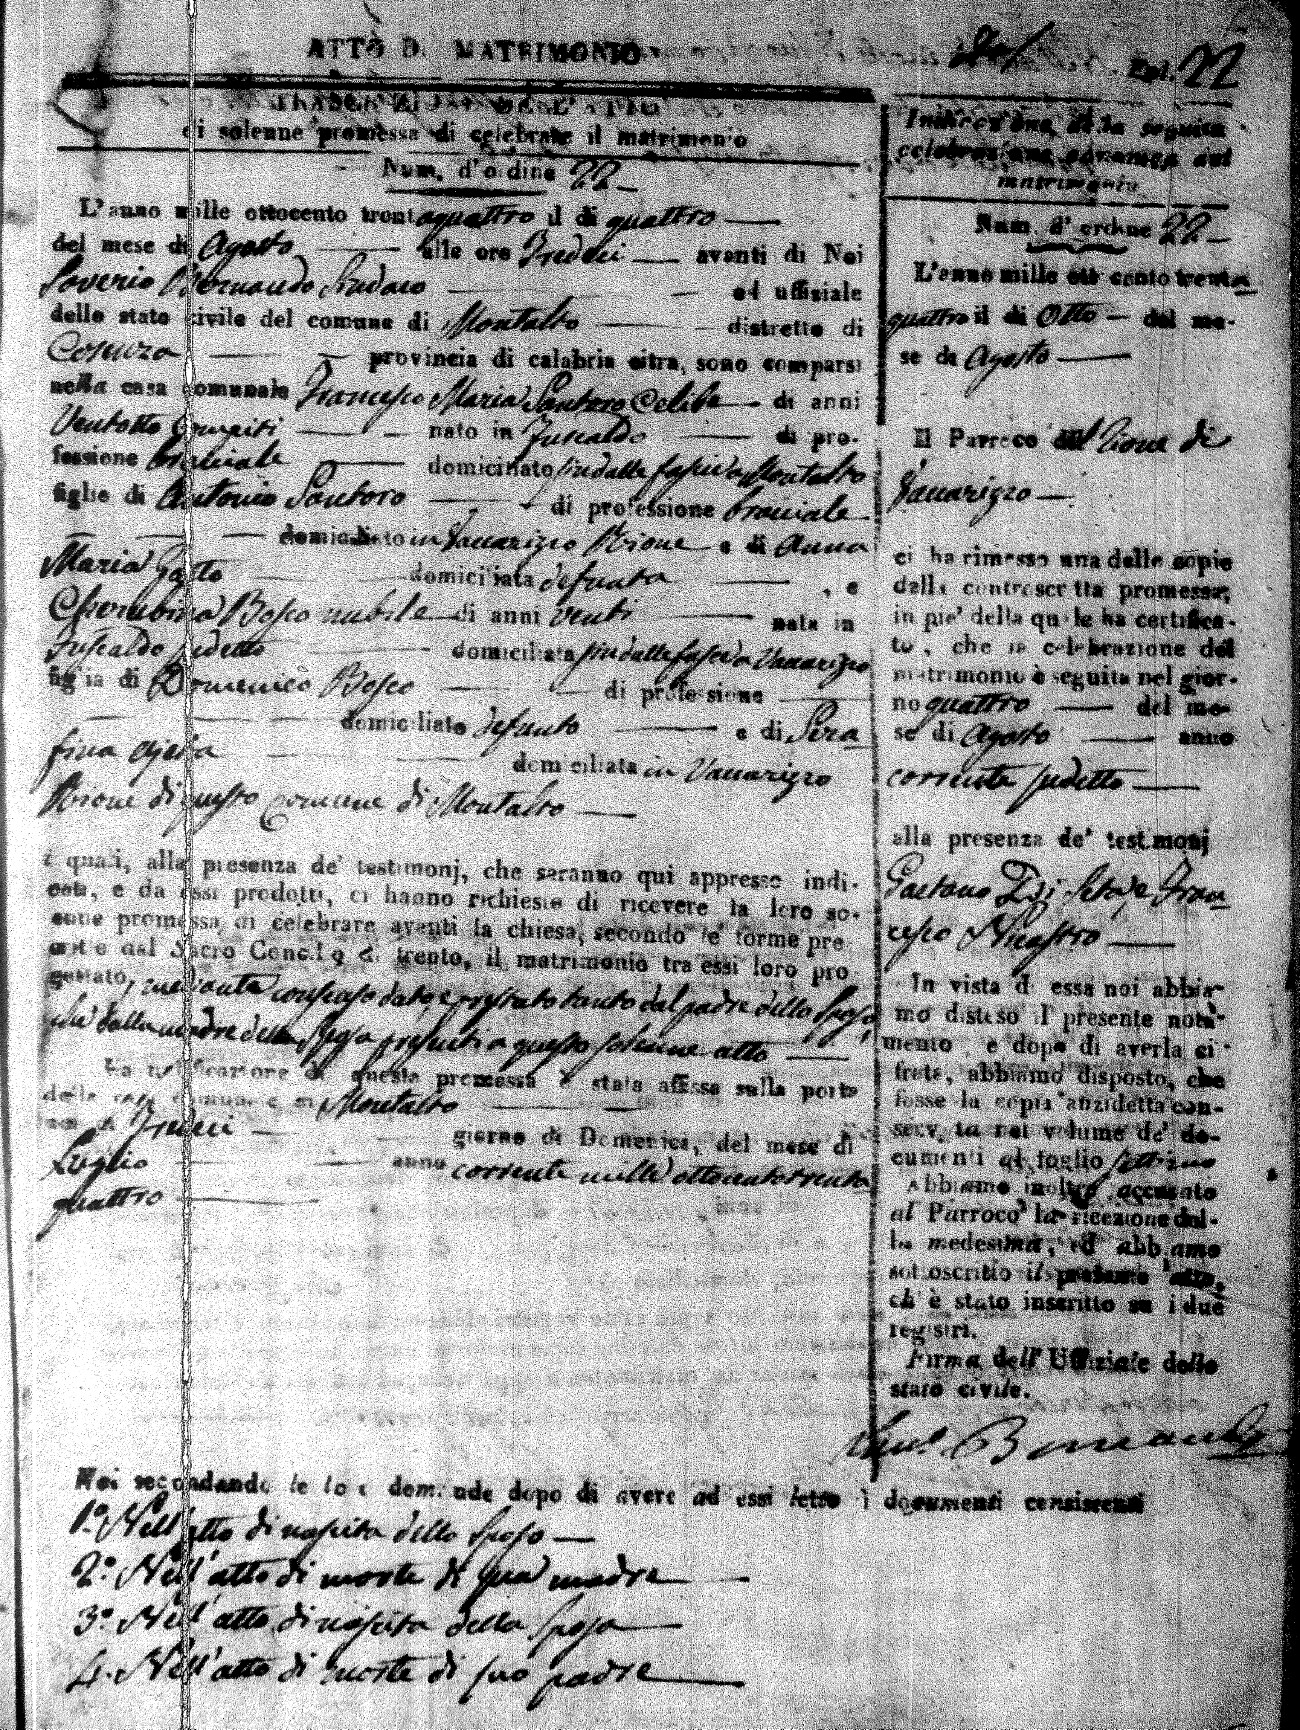 ATTO D. MATRIMONIO
Fol. 22
di solenne promessa di celebrare il matrimonio
Num. d'ordine 22
L'anno mille ottocento trentaquattro il di quattro
del mese di Agosto alle ore Tredeci avanti di Noi
Saverio Bernardo ed uffiziale
dello stato civile del comune di Montalto distretto di
Cosenza provincia di calabria citra, sono comparsi
nella casa comunale Francesco Maria Santoro Celibe di anni
Ventotto Compiti nato in Fuscaldo di pro-
fessione bracciale domiciliato sin dalle fascie in Montalto
figlio di Antonio Santoro di professione bracciale
domiciliato in Vaccarizzo Rione e di Anna
Maria Gatto domiciliata defunta , e
Cherubina Bosco nubile di anni venti nata in
Fuscaldo sudetto domiciliata sin dalle fascie a Vaccarizzo
figlia di Domenico Bosco di professione
domiciliato defunto e di Sera
fina domiciliata in Vaccarizzo
Rione di questo Comune di Montalto
i quali, alla presenza de' testimonj, che saranno qui appresso indi-
cati, e da essi prodotti, ci hanno richiesto di ricevere la loro so-
lenne promessa di celebrare avanti la chiesa, secondo le forme pre
scritte dal Sacro Concilio di trento, il matrimonio tra essi loro pro
gettato, mediante consenso dato, e prestato tanto dal padre dello Sposo,
che dalla madre della Sposa presenti a questo solenne atto
La notificazione di questa promessa è stata affissa sulla porta
della casa comunale di Montalto
giorno di Domenica, del mese di
Luglio anno corrente mille ottocentotrenta
quattro
Noi secondando le loro domande dopo di avere ad essi letto i documenti consistenti
1.º Nell'atto di nascita dello Sposo
2.º Nell'atto di morte di sua madre
3.º Nell'atto di nascita della Sposa
4. Nell'atto di morte di suo padre
Indicazione della seguita
celebrazione canonica del
matrimonio
Num. d'ordine 22
L'anno mille otto cento trenta
quattro il di Otto del me-
se di Agosto
Il Parroco del Rione di
Vaccarizzo
ci ha rimesso una delle copie
della controscritta promessa;
in pie' della quale ha certifica-
to, che la celebrazione del
matrimonio è seguita nel gior-
no quattro del me-
se di Agosto anno
corrente sudetto
alla presenza de' testimonj
Gaetano Seta, e Fran
cesco Nicastro
In vista di essa noi abbia-
mo disteso il presente nota-
mento, e dopo di averla ci-
frata, abbiamo disposto, che
fosse la copia anzidetta con-
servata nel volume de' do-
cumenti al foglio settimo
Abbiamo inoltre accusato
al Parroco la ricezione del-
la medesima, ed abbiamo
sottoscritto il presente atto,
ch' è stato inscritto su i due
registri.
Firma dell' Uffiziale dello
stato civile.